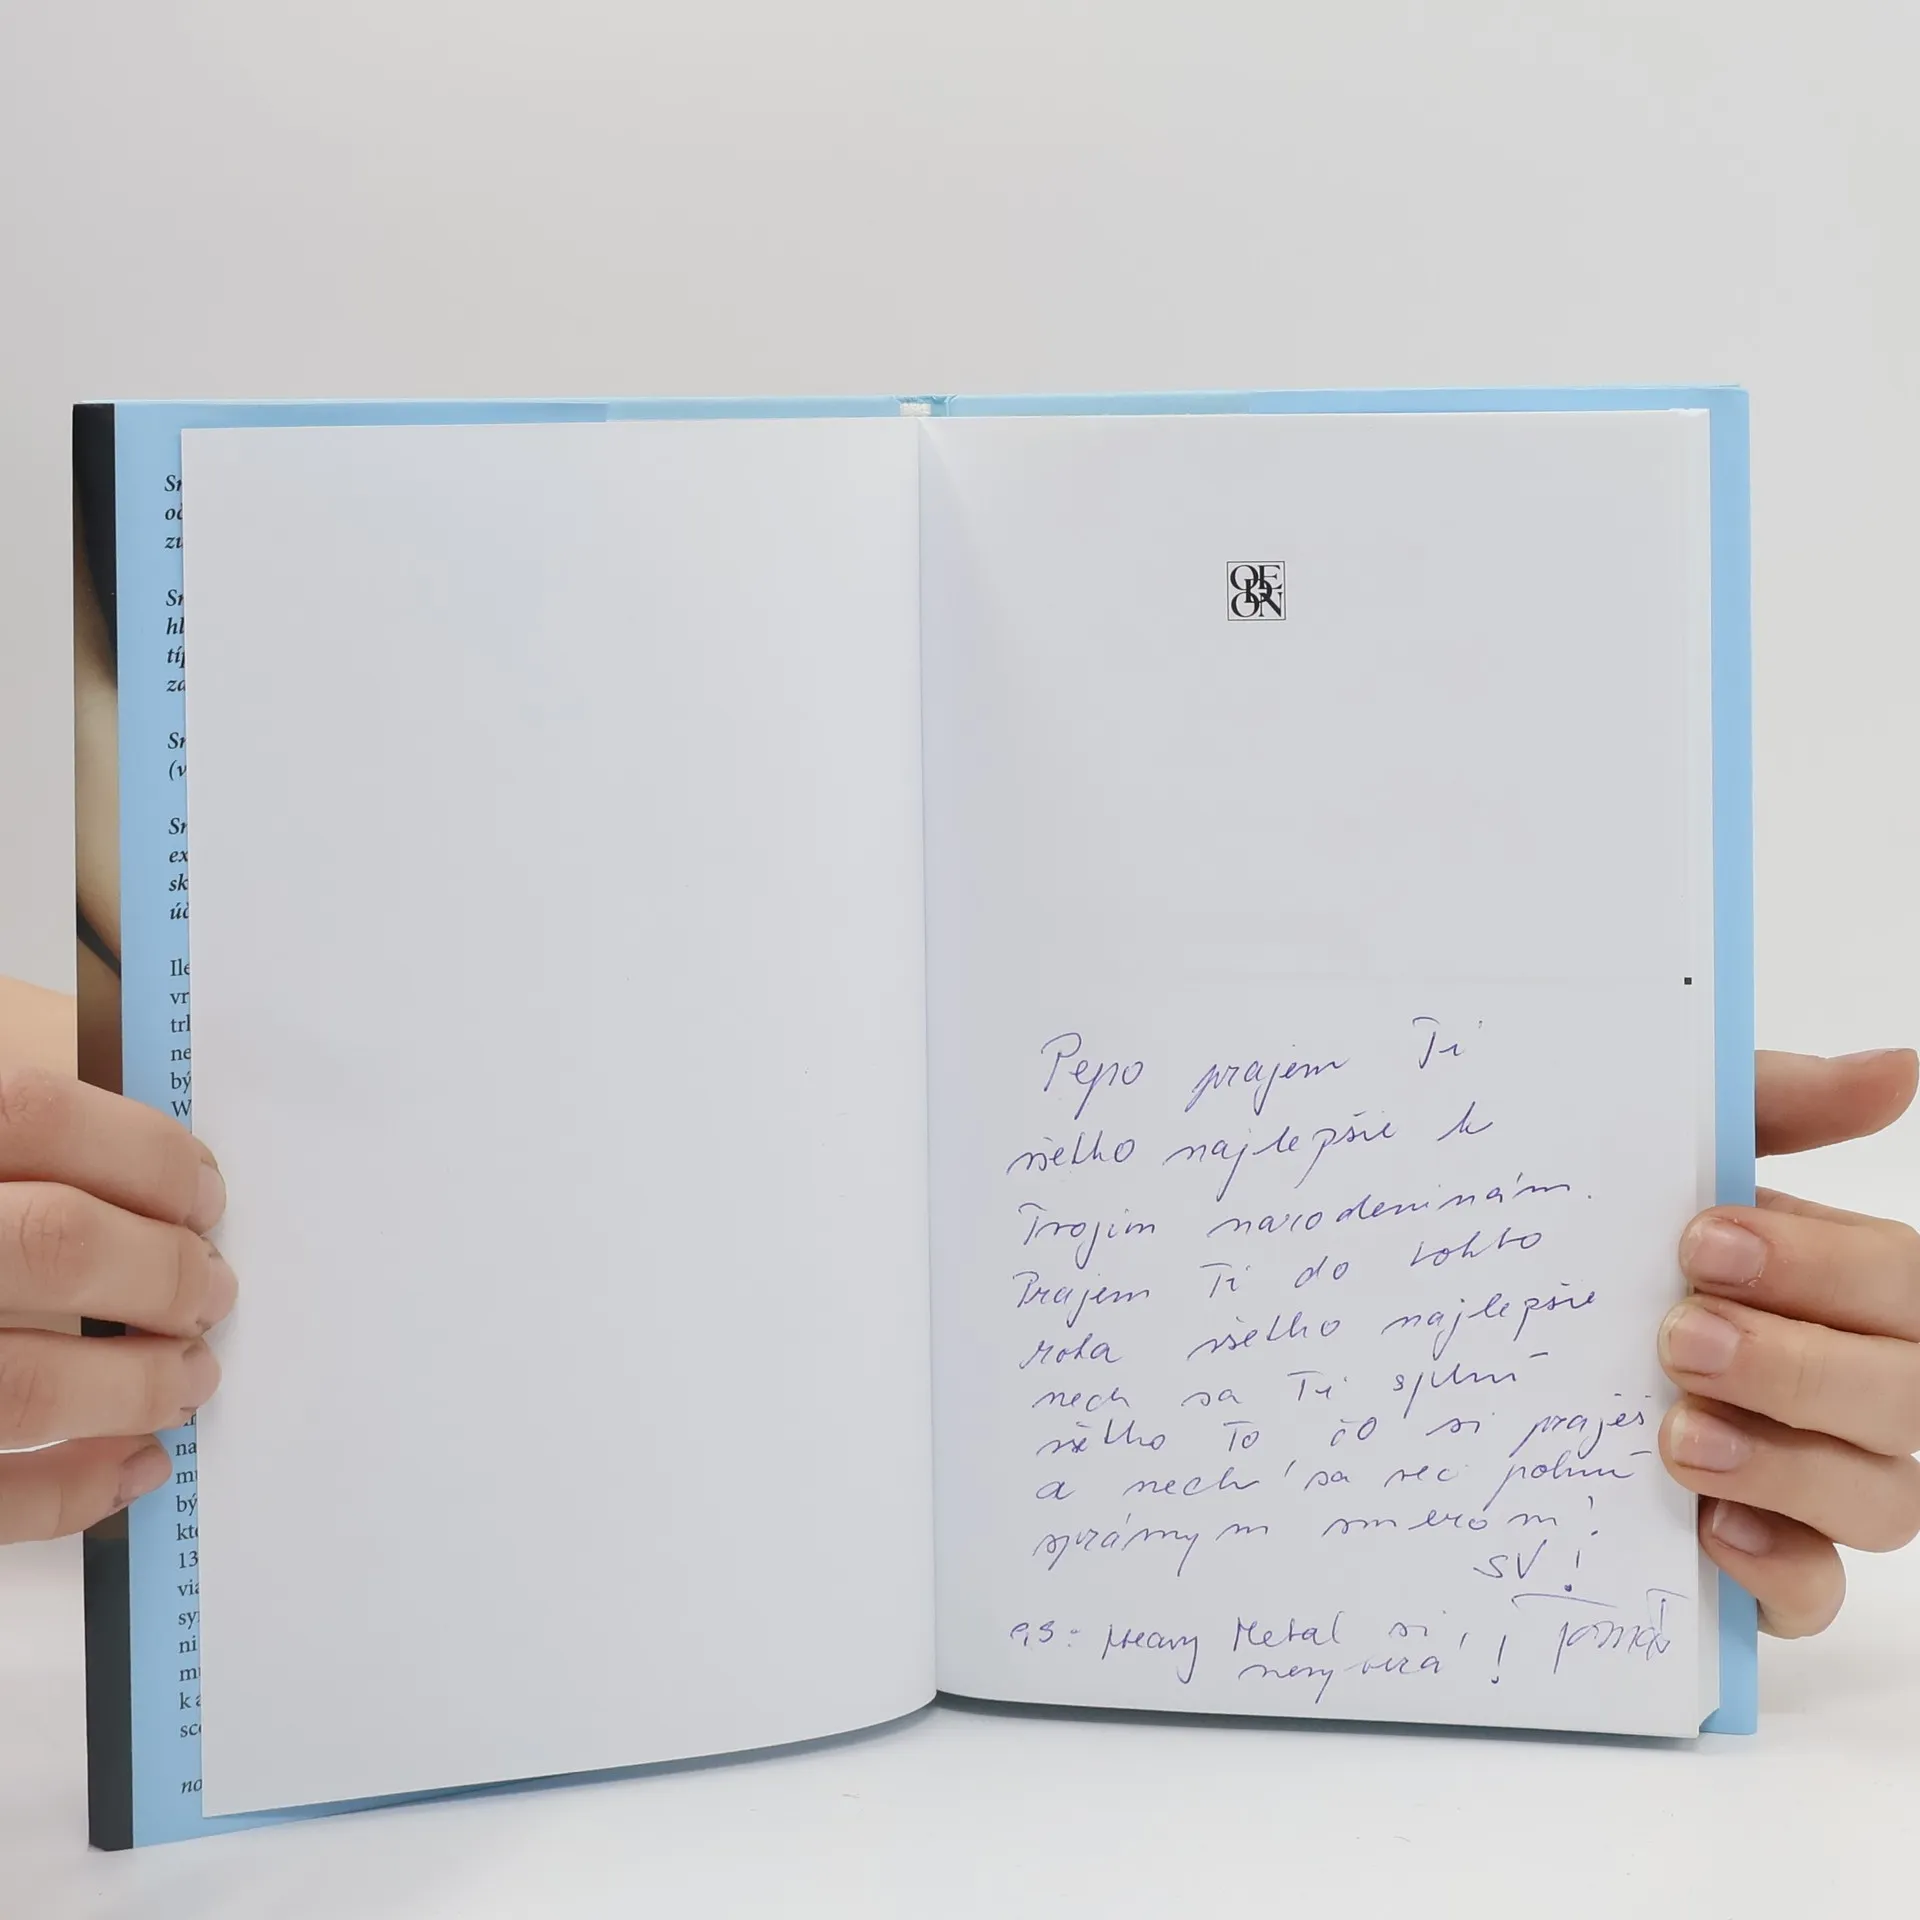 Sr
oč
zu
Sr
hl
típ
za
Sr
(v
Sr
ex
sk
úč
Ile
vr
trh
ne
bý
W
na
mu
bý
kte
13
via
syr
ni
mu
k a
sce
no
OE
D
ON
Pepo prajem Ti
všetko najlepšie k
Tvojim narodeninám.
Prajem Ti do tohto
roka všetko najlepšie
nech sa Ti splní
všetko to čo si praješ
a nech sa vec pohnú
správnym smerom!
SV!
P.S: Heavy Metal si
nevyberá! Tomáš